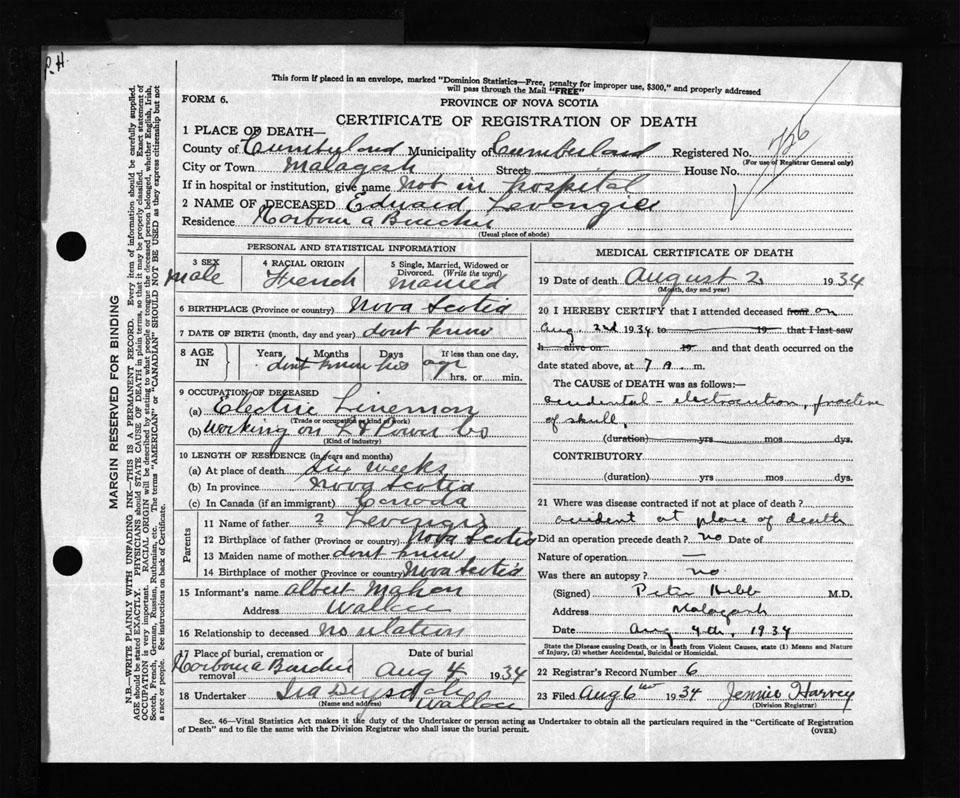 P.H.
This form if placed in an envelope, marked "Dominion Statistics—Free, penalty for improper use, $300," and properly addressed
will pass through the Mail "FREE"
FORM 6.
PROVINCE OF NOVA SCOTIA
CERTIFICATE OF REGISTRATION OF DEATH
1 PLACE OF DEATH—
County of Cumberland Municipality of Cumberland Registered No. 726
(For use of Registrar General only)
City or Town Malagash Street House No.
If in hospital or institution, give name not in hospital
2 NAME OF DECEASED Edward
Residence Harbour a Bouche
(Usual place of abode)
PERSONAL AND STATISTICAL INFORMATION
3 SEX Male
4 RACIAL ORIGIN French
5 Single, Married, Widowed or Divorced. (Write the word) Married
6 BIRTHPLACE (Province or country) Nova Scotia
7 DATE OF BIRTH (month, day and year) dont know
8 AGE IN Years Months Days If less than one day,
dont know his age
hrs. or min.
9 OCCUPATION OF DECEASED
(a) Electric Lineman
(Trade or occupation or kind of work)
(b) working on Power Co
(Kind of industry)
10 LENGTH OF RESIDENCE (in years and months)
(a) At place of death Six weeks
(b) In province Nova Scotia
(c) In Canada (if an immigrant) Canada
Parents
11 Name of father ?
12 Birthplace of father (Province or country) Nova Scotia
13 Maiden name of mother dont know
14 Birthplace of mother (Province or country) Nova Scotia
15 Informant's name Albert
Address Wallace
16 Relationship to deceased no relation
17 Place of burial, cremation or removal Harbour a Bouche
Date of burial Aug 4 1934
18 Undertaker Ira
(Name and address) Wallace
MEDICAL CERTIFICATE OF DEATH
19 Date of death August 2 1934
(Month, day and year)
20 I HEREBY CERTIFY that I attended deceased from on
Aug. 2nd 1934 to 19 that I last saw
h alive on 19 and that death occurred on the
date stated above, at 7 a. m.
The CAUSE of DEATH was as follows:—
accidental - electrocution, fracture
of skull,
(duration) yrs mos dys.
CONTRIBUTORY
(duration) yrs mos dys.
21 Where was disease contracted if not at place of death?
accident at place of death
Did an operation precede death? no Date of
Nature of operation —
Was there an autopsy? no
(Signed) Peter M.D.
Address Malagash
Date Aug 4th, 1934
State the Disease causing Death, or in death from Violent Causes, state (1) Means and Nature
of Injury, (2) whether Accidental, Suicidal or Homicidal.
22 Registrar's Record Number 6
23 Filed Aug 6 1934 Jennie Harvey
(Division Registrar)
Sec. 46—Vital Statistics Act makes it the duty of the Undertaker or person acting as Undertaker to obtain all the particulars required in the "Certificate of Registration
of Death" and to file the same with the Division Registrar who shall issue the burial permit.
(OVER)
MARGIN RESERVED FOR BINDING
N.B.—WRITE PLAINLY WITH UNFADING INK—THIS IS A PERMANENT RECORD. Every item of information should be carefully supplied.
AGE should be stated EXACTLY. PHYSICIANS should STATE CAUSE OF DEATH in plain terms, so that it may be properly classified. Exact statement of
OCCUPATION is very important. RACIAL ORIGIN will be described by stating to what people or tongue the deceased person belonged, whether English, Irish,
Scotch, French, German, Russian, Ruthenian, etc. The terms "AMERICAN" or "CANADIAN" SHOULD NOT BE USED as they express citizenship but not
a race or people. See instructions on back of Certificate.